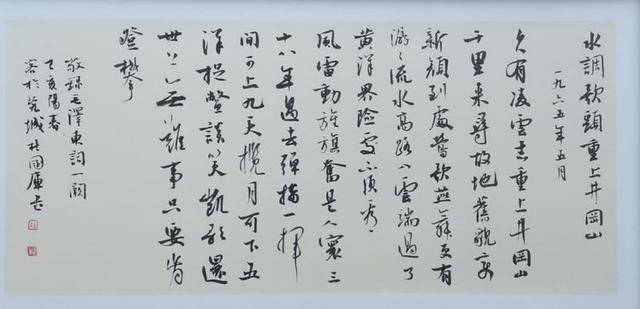 水調歌頭重上井岡山
一九六五年五月
久有凌雲志重上井岡山
千里来尋故地舊貌變
新顔到處鶯歌燕舞更有
潺潺流水高路入雲端過了
黄洋界險處不須看
風雷動旌旗奮是人寰三
十八年過去彈指一揮
間可上九天攬月可下五
洋捉鱉談笑凱歌還
世上無難事只要肯
登攀
敬録毛澤東詞一闋
乙亥陽春
客於羌城杜國庫書